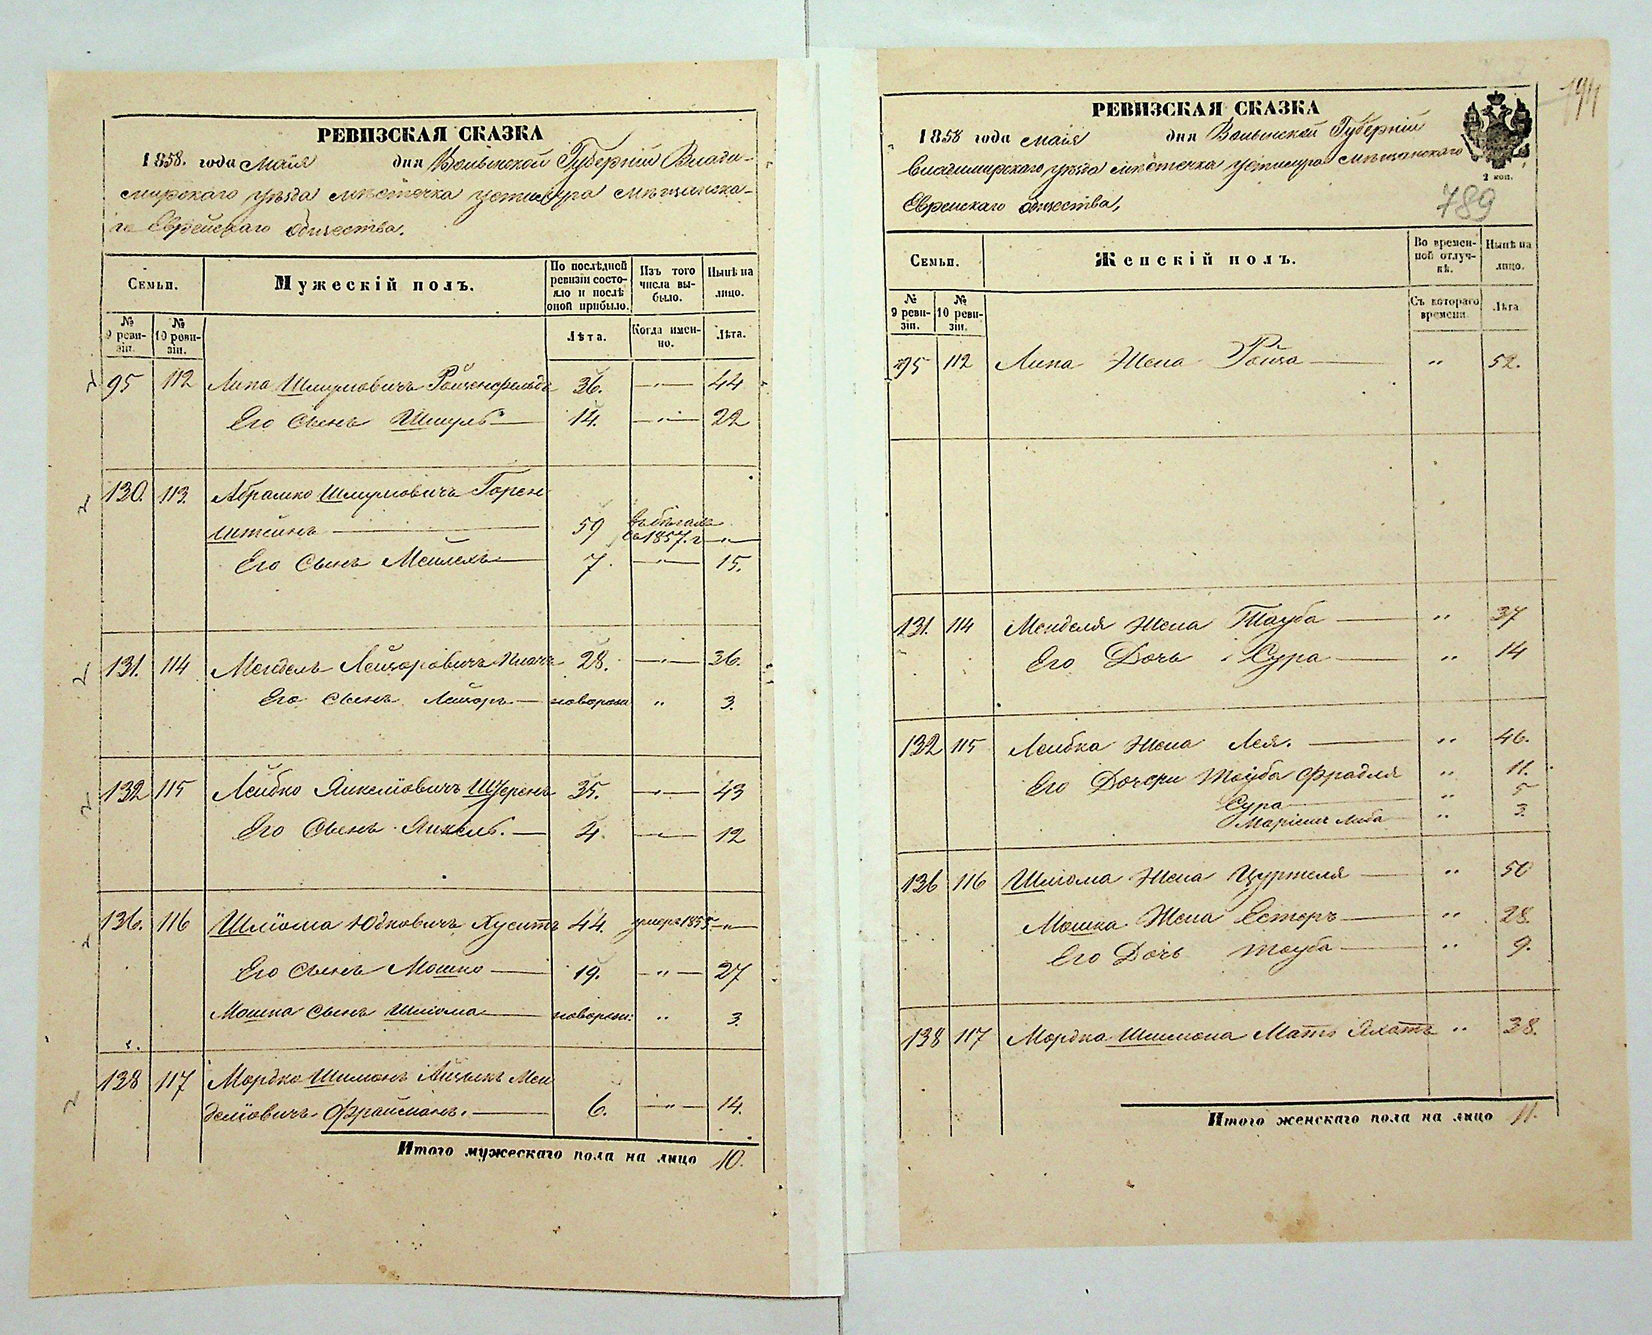 РЕВИЗСКАЯ СКАЗКА
1858. года майя дня Волынской Губерніи Влади-
мирскаго уѣзда мѣстечка устилуга мѣщанска-
го Еврейскаго общества.
Семьи. Мужескій полъ. По послѣдней ревизіи состояло и послѣ оной прибыло. Изъ того числа выбыло. Нынѣ на лицо.
№ 9 ревизіи. № 10 ревизіи. Лѣта. Когда именно. Лѣта.
95 112 Липа Шмулiовичъ Ройзенфельдъ 36. —"— 44
Его сынъ Шмуль 14. —"— 22
130. 113. Абрамко Шмулiовичъ Горен
штейнъ 59 въ 1857. г —"—
Его Сынъ Мейлехъ 7. —"— 15.
131. 114 Мендель Лейзоровичъ 28. —"— 36.
Его сынъ Лейзоръ новорожд " 3.
132 115 Лейбко Янкелiовичъ 35. —"— 43
Его Сынъ Янкель. 4. —"— 12
136. 116 Шліома Юдковичъ Хуситъ 44. умеръ 1855 —"—
Его сынъ Мошко 19. —"— 27
Мошка сынъ Шліома новорож: " 3.
138 117 Мордко Шимонъ Айзыкъ Мен
делiовичъ Фрайманъ. 6. —"— 14.
Итого мужескаго пола на лицо 10.
194
РЕВИЗСКАЯ СКАЗКА
1858 года майя дня Волынской Губерніи
Владимирскаго уѣзда мѣстечка устилуга мѣщанскаго
Еврейскаго общества,
2 коп.
789
Семьи. Женскій полъ. Во временной отлучкѣ. Нынѣ на лицо.
№ 9 ревизіи. № 10 ревизіи. Съ котораго времени. Лѣта.
95 112 Липа Жена Ройза " 52.
131. 114 Менделя Жена Тауба " 37
Его Дочь Сура " 14
132 115 Лейбка Жена Лея. " 46.
Его Дочери Тауба Фрадля " 11.
Сура " 5
Маріемъ Либа " 3.
136 116 Шліома Жена " 50
Мошка Жена Естеръ " 28.
Его Дочь Тауба " 9.
138 117 Мордка Шимона Мать " 38.
Итого женскаго пола на лицо 11.